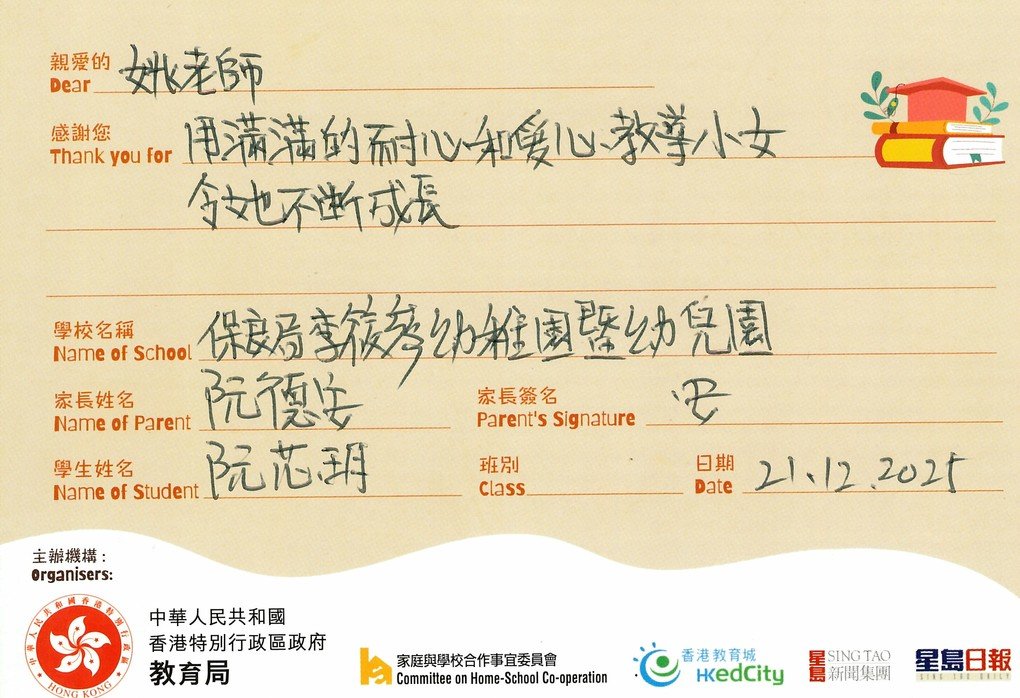 親愛的
Dear 姚老師
感謝您
Thank you for 用滿滿的耐心和愛心教導小女
令她不斷成長
學校名稱
Name of School 保良局李筱麥幼稚園暨幼兒園
家長姓名
Name of Parent 阮德安
家長簽名
Parent's Signature 安
學生姓名
Name of Student 阮芯玥
班別
Class
日期
Date 21.12.2025
主辦機構：
Organisers:
中華人民共和國香港特別行政區
HONG KONG
中華人民共和國
香港特別行政區政府
教育局
家庭與學校合作事宜委員會
Committee on Home-School Co-operation
香港教育城
HKedCity
星島 SING TAO
新聞集團
星島日報
SING TAO DAILY